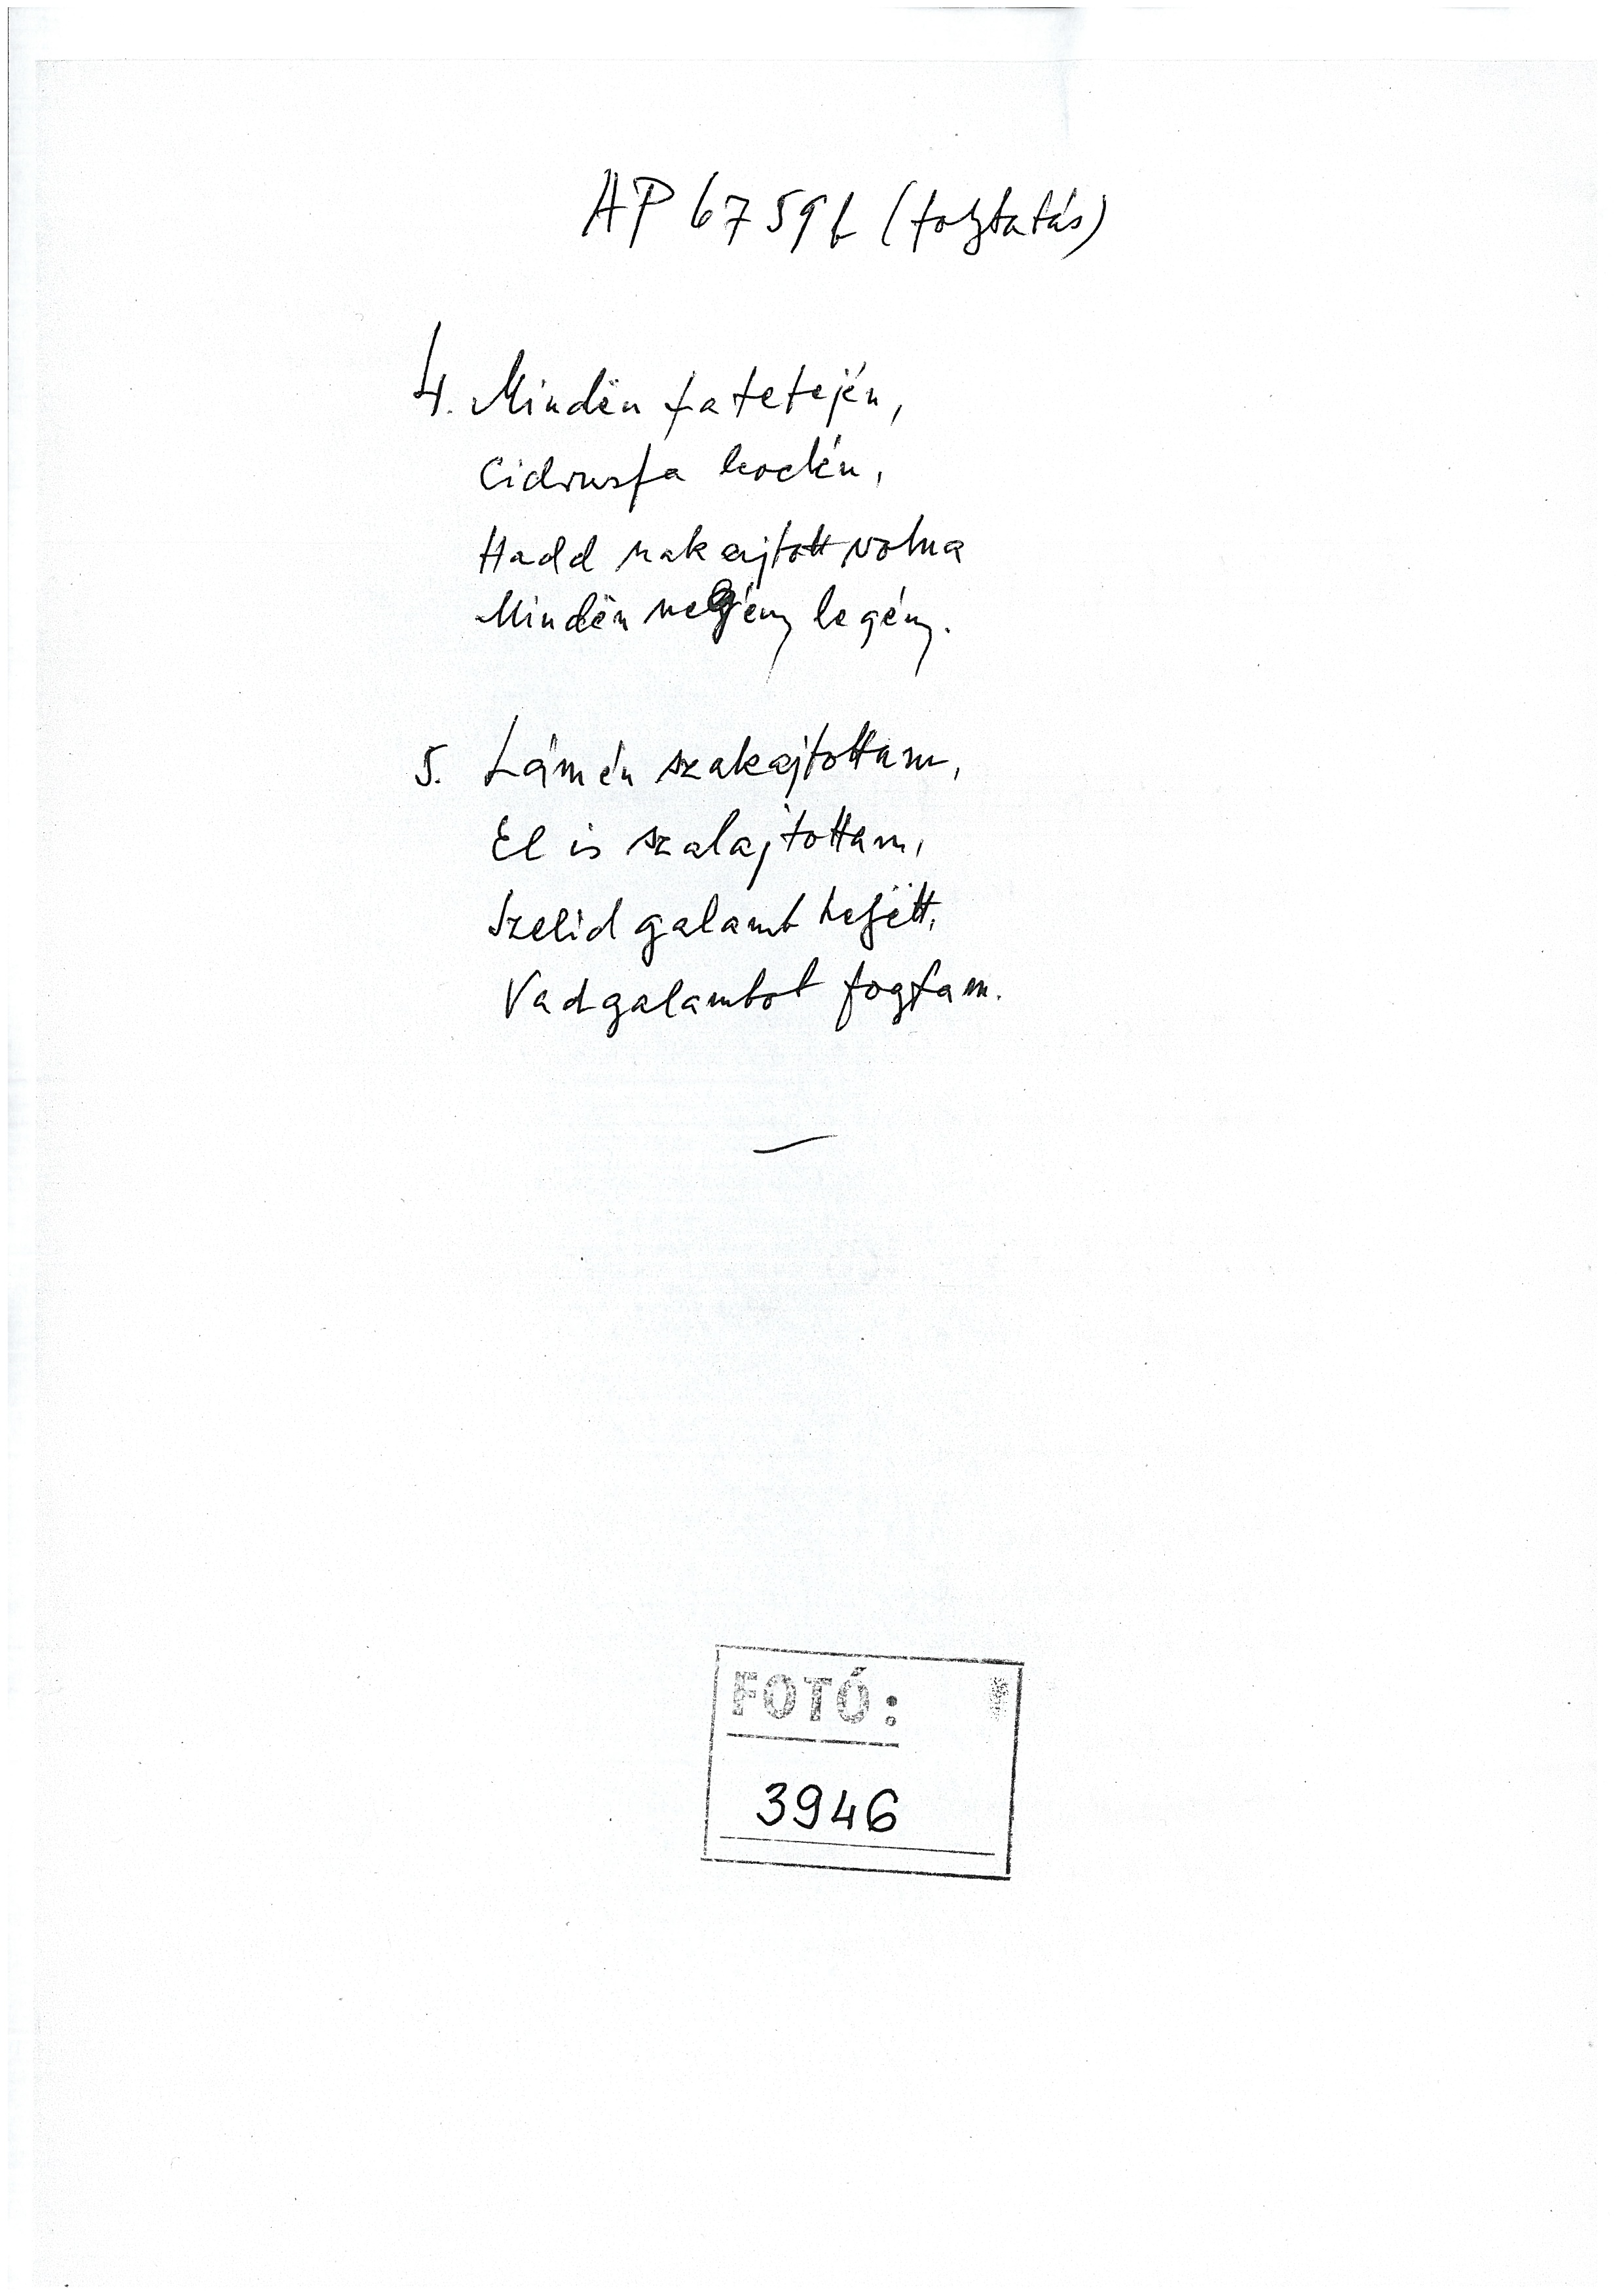 AP 6759f (folytatás)
4. Mindën fa tetején,
Cidrusfa
Hadd szakajtott volna
Mindën szegény legény.
5. Lám én szakajtottam,
El is szalajtottam,
Szelid galamb helyëtt,
Vadgalambot fogtam.
FOTÓ:
3946